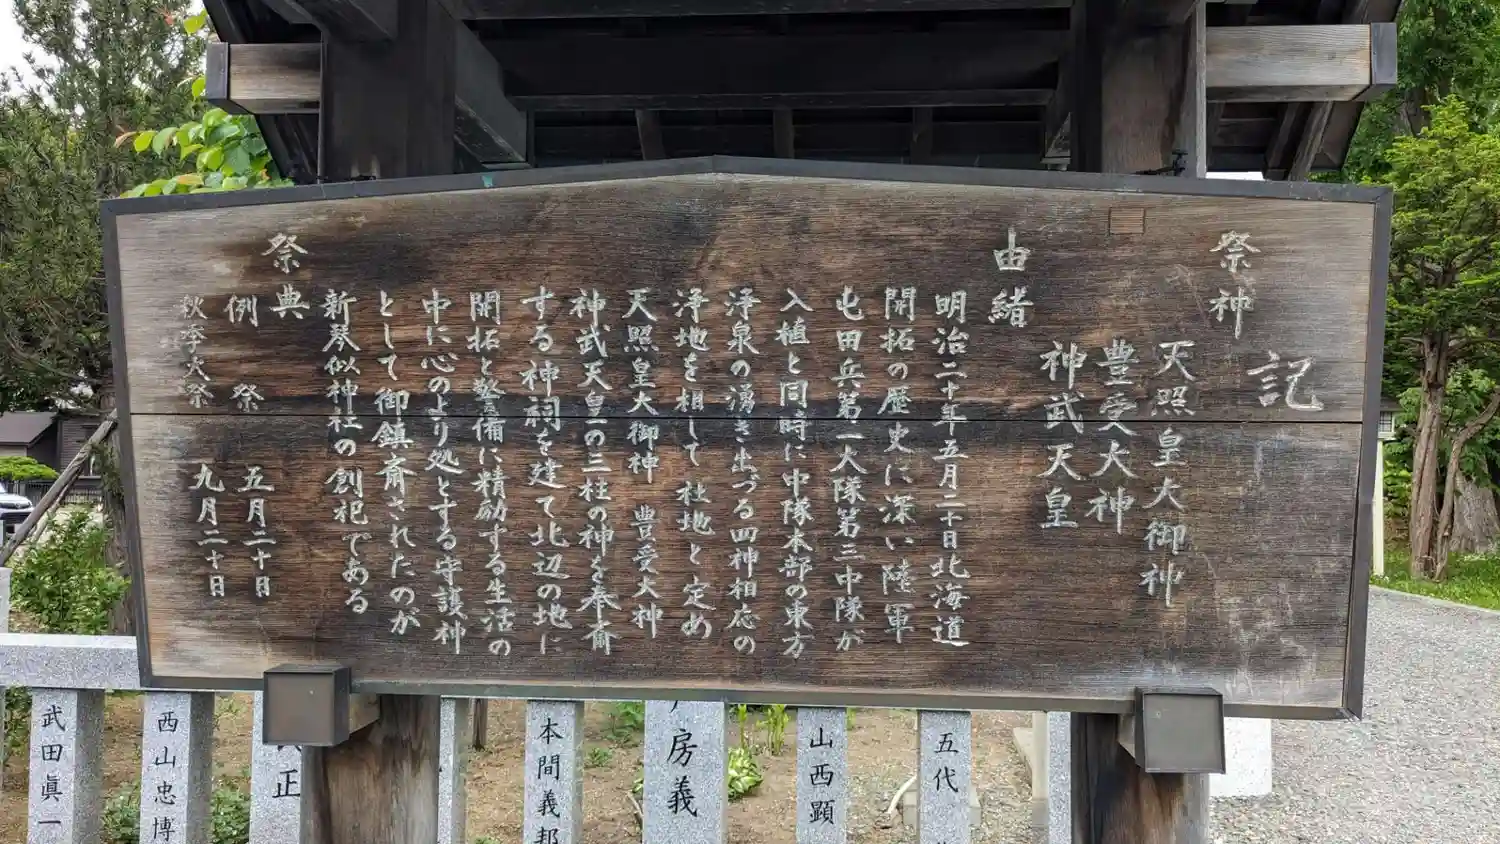 記
祭神
天照皇大御神
豊受大神
神武天皇
由緒
明治二十年五月二十日北海道
開拓の歴史に深い陸軍
屯田兵第一大隊第三中隊が
入植と同時に中隊本部の東方
浄泉の湧き出づる四神相応の
浄地を相して社地と定め
天照皇大御神 豊受大神
神武天皇の三柱の神を奉斎
する神祠を建て北辺の地に
開拓と警備に精励する生活の
中に心のより処とする守護神
として御鎮斎されたのが
新琴似神社の創祀である
祭典
例祭 五月二十日
秋季大祭 九月二十日
五代
山西顕
房義
本間義邦
正
西山忠博
武田眞一